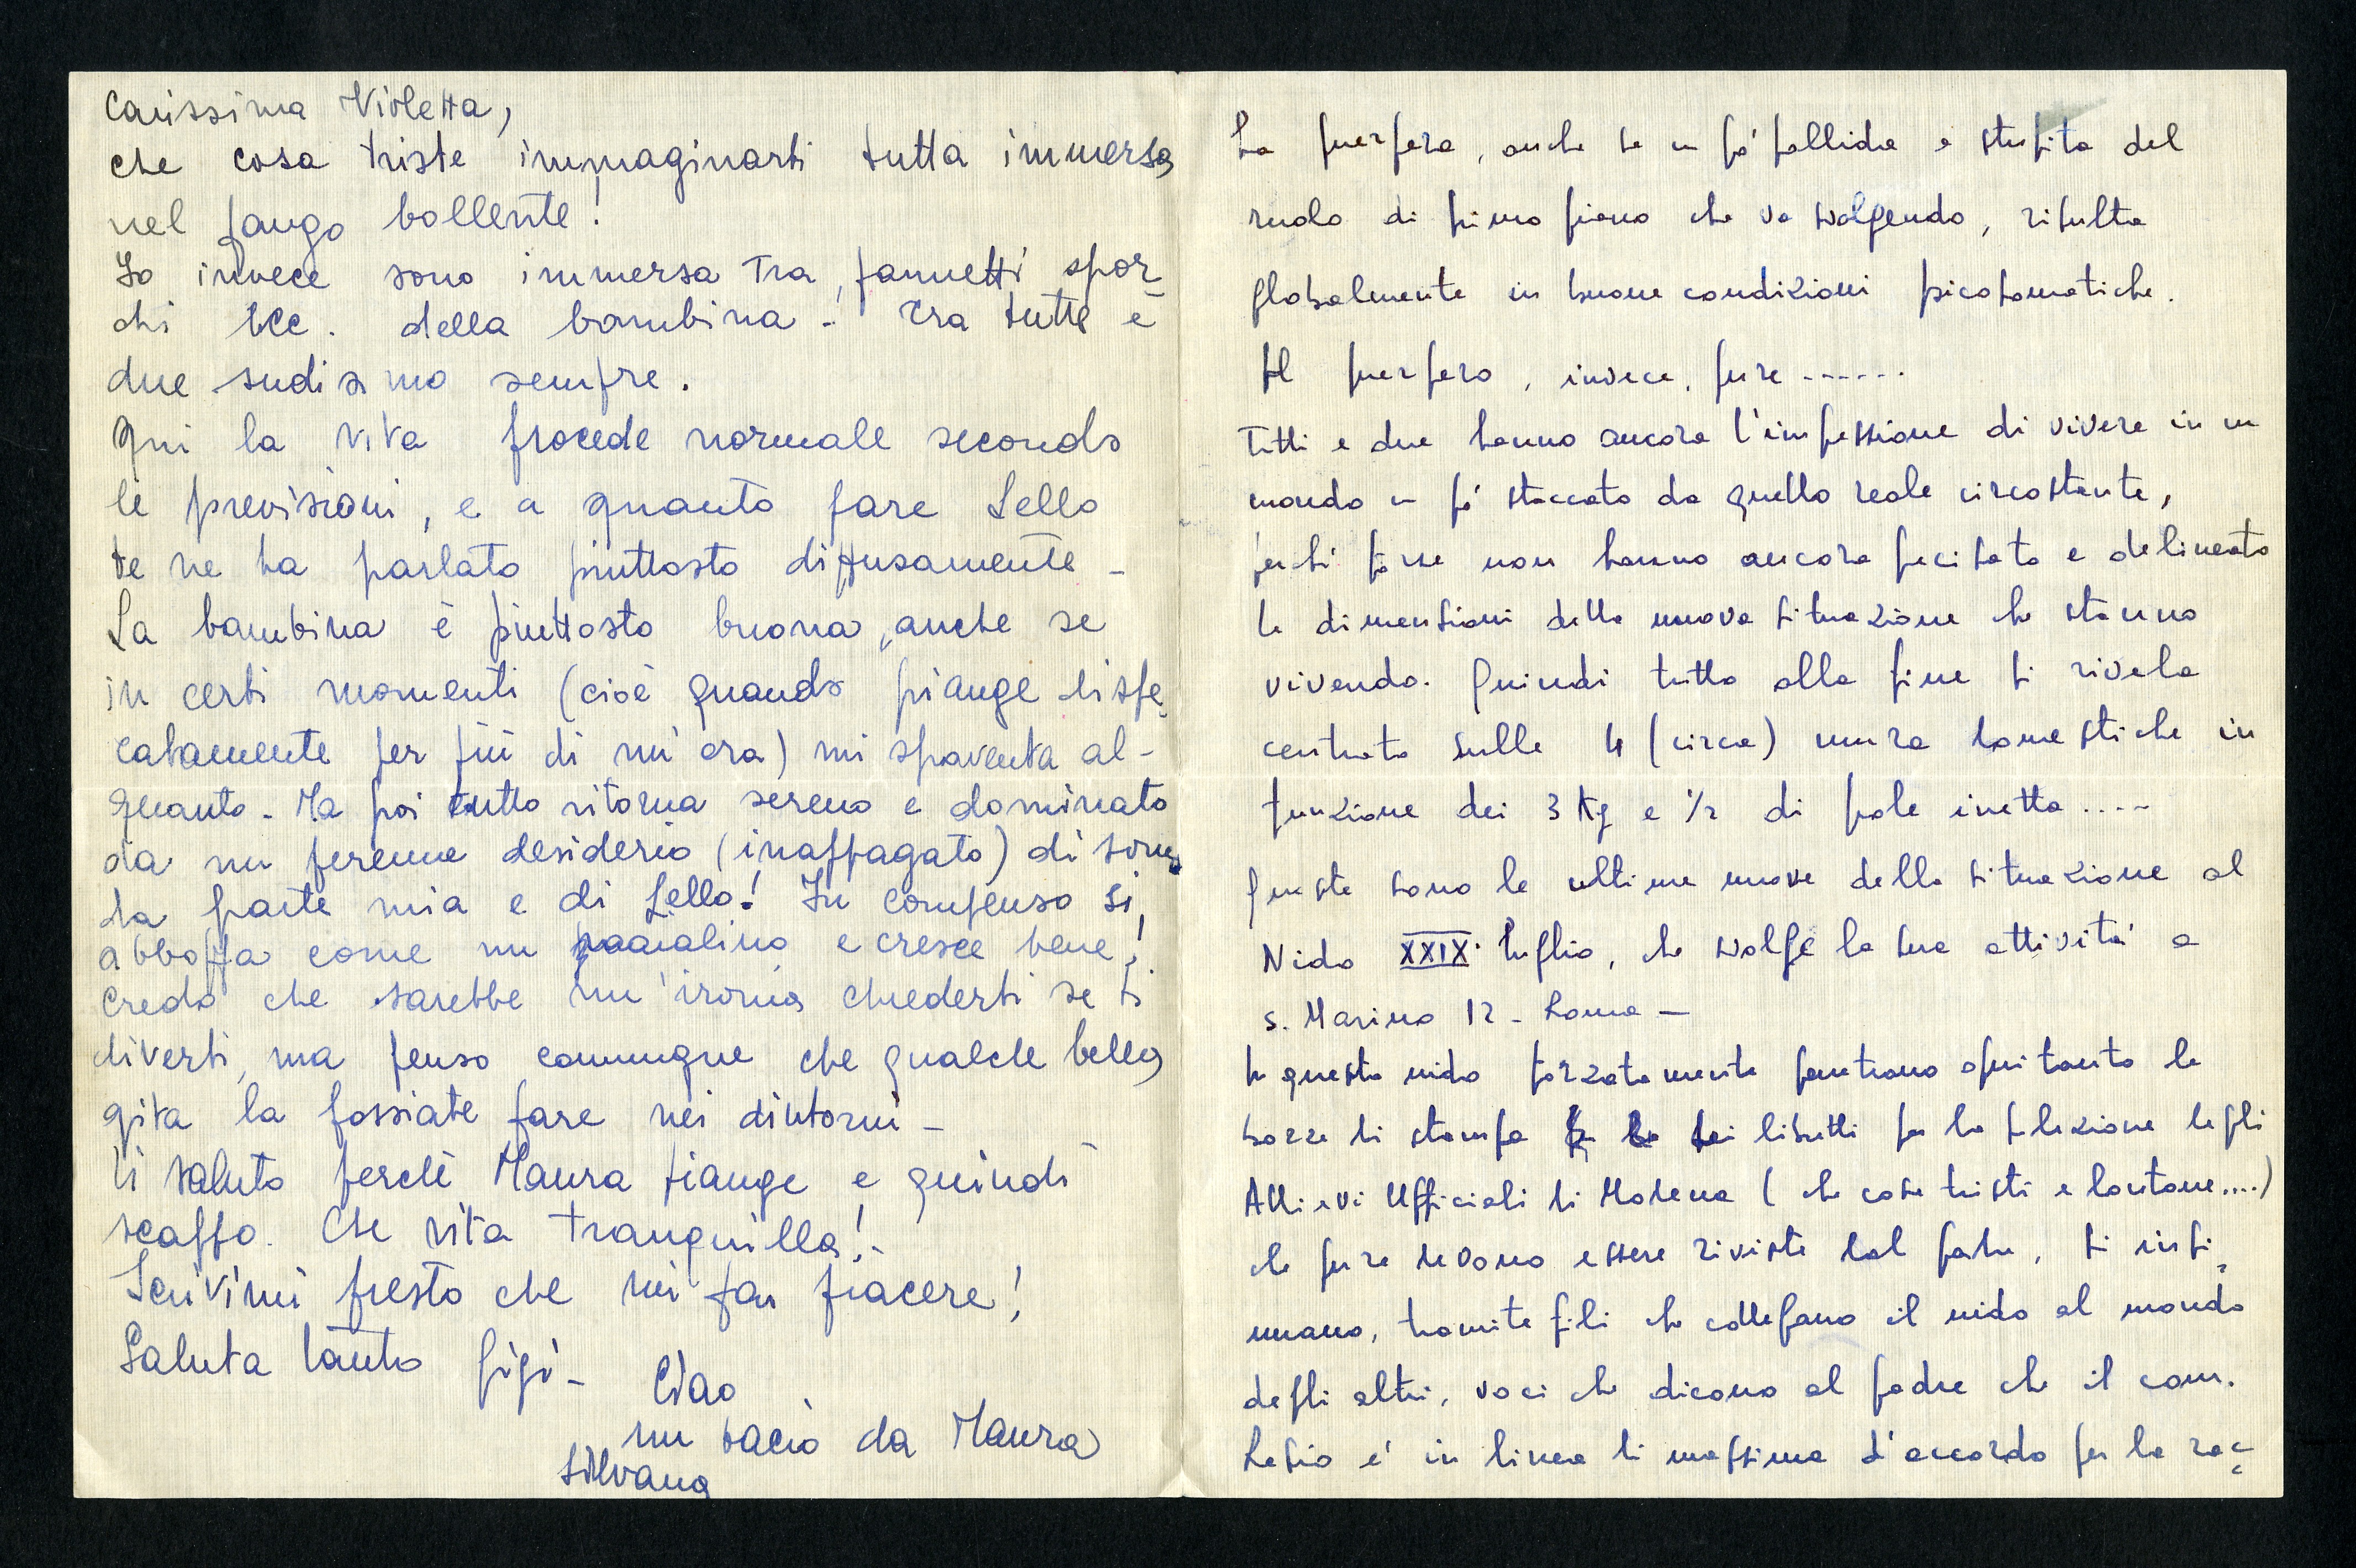 Carissima Violetta,
che cosa triste immaginarti tutta immersa
nel fango bollente!
Io invece sono immersa tra pannetti spor-
chi ecc. della bambina! Tra tutte e
due sudiamo sempre.
Qui la vita procede normale secondo
le previsioni, e a quanto pare Lello
te ne ha parlato piuttosto diffusamente -
La bambina è piuttosto buona, anche se
in certi momenti (cioè quando piange dispe-
ratamente per più di un'ora) mi spaventa al-
quanto - Ma poi tutto ritorna sereno e dominato
da un perenne desiderio (inappagato) di sonno
da parte mia e di Lello! In compenso si
abboffa come un maialino e cresce bene!
Credo che sarebbe un'ironia chiederti se ti
diverti, ma penso comunque che qualche bella
gita la possiate fare nei dintorni -
Ti saluto perchè Maura piange e quindi
scappo. Che vita tranquilla!-
Scrivimi presto che mi fai piacere!
Saluta tanto Gigi - Ciao
un bacio da Maura
Silvana
La puerpera, anche se un pò pallida e stupita del
ruolo di primo piano che va svolgendo, risulta
globalmente in buone condizioni psicosomatiche.
Il puerpero, invece, pure ------
Tutti e due hanno ancora l'impressione di vivere in un
mondo un pò staccato da quello reale circostante,
perchè forse non hanno ancora precisato e delineato
le dimensioni della nuova situazione che stanno
vivendo. Quindi tutto alla fine si rivela
centrato sulle 4 (circa) mura domestiche in
funzione dei 3 Kg e 1/2 di prole inetta ....
Queste sono le ultime nuove della situazione al
Nido XXIX luglio, che svolge la sua attività a
S. Marino 12 - Roma -
In questo nido forzatamente penetrano ogni tanto le
bozze di stampa dei libretti per la selezione degli
Allievi Ufficiali di Modena (che cose tristi e lontane....)
che pure devono essere riviste dal padre, si insi-
nuano, tramite fili che collegano il nido al mondo
degli altri, voci che dicono al padre che il com.
Resio è in linea di massima d'accordo per la rac-